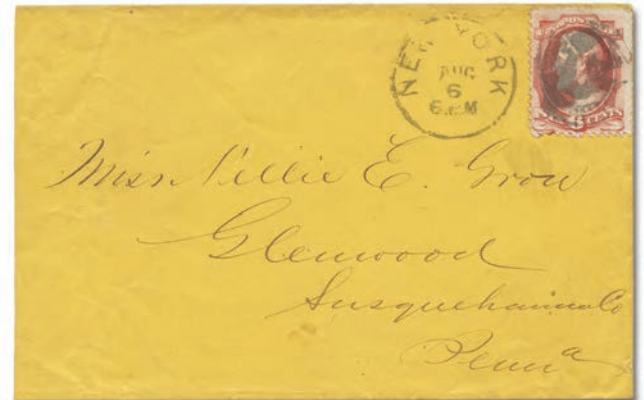 NEW YORK
AUG
6
6 PM
6 CENTS
Miss Nellie E. Grow
Glenwood
Susquehanna Co
Penna